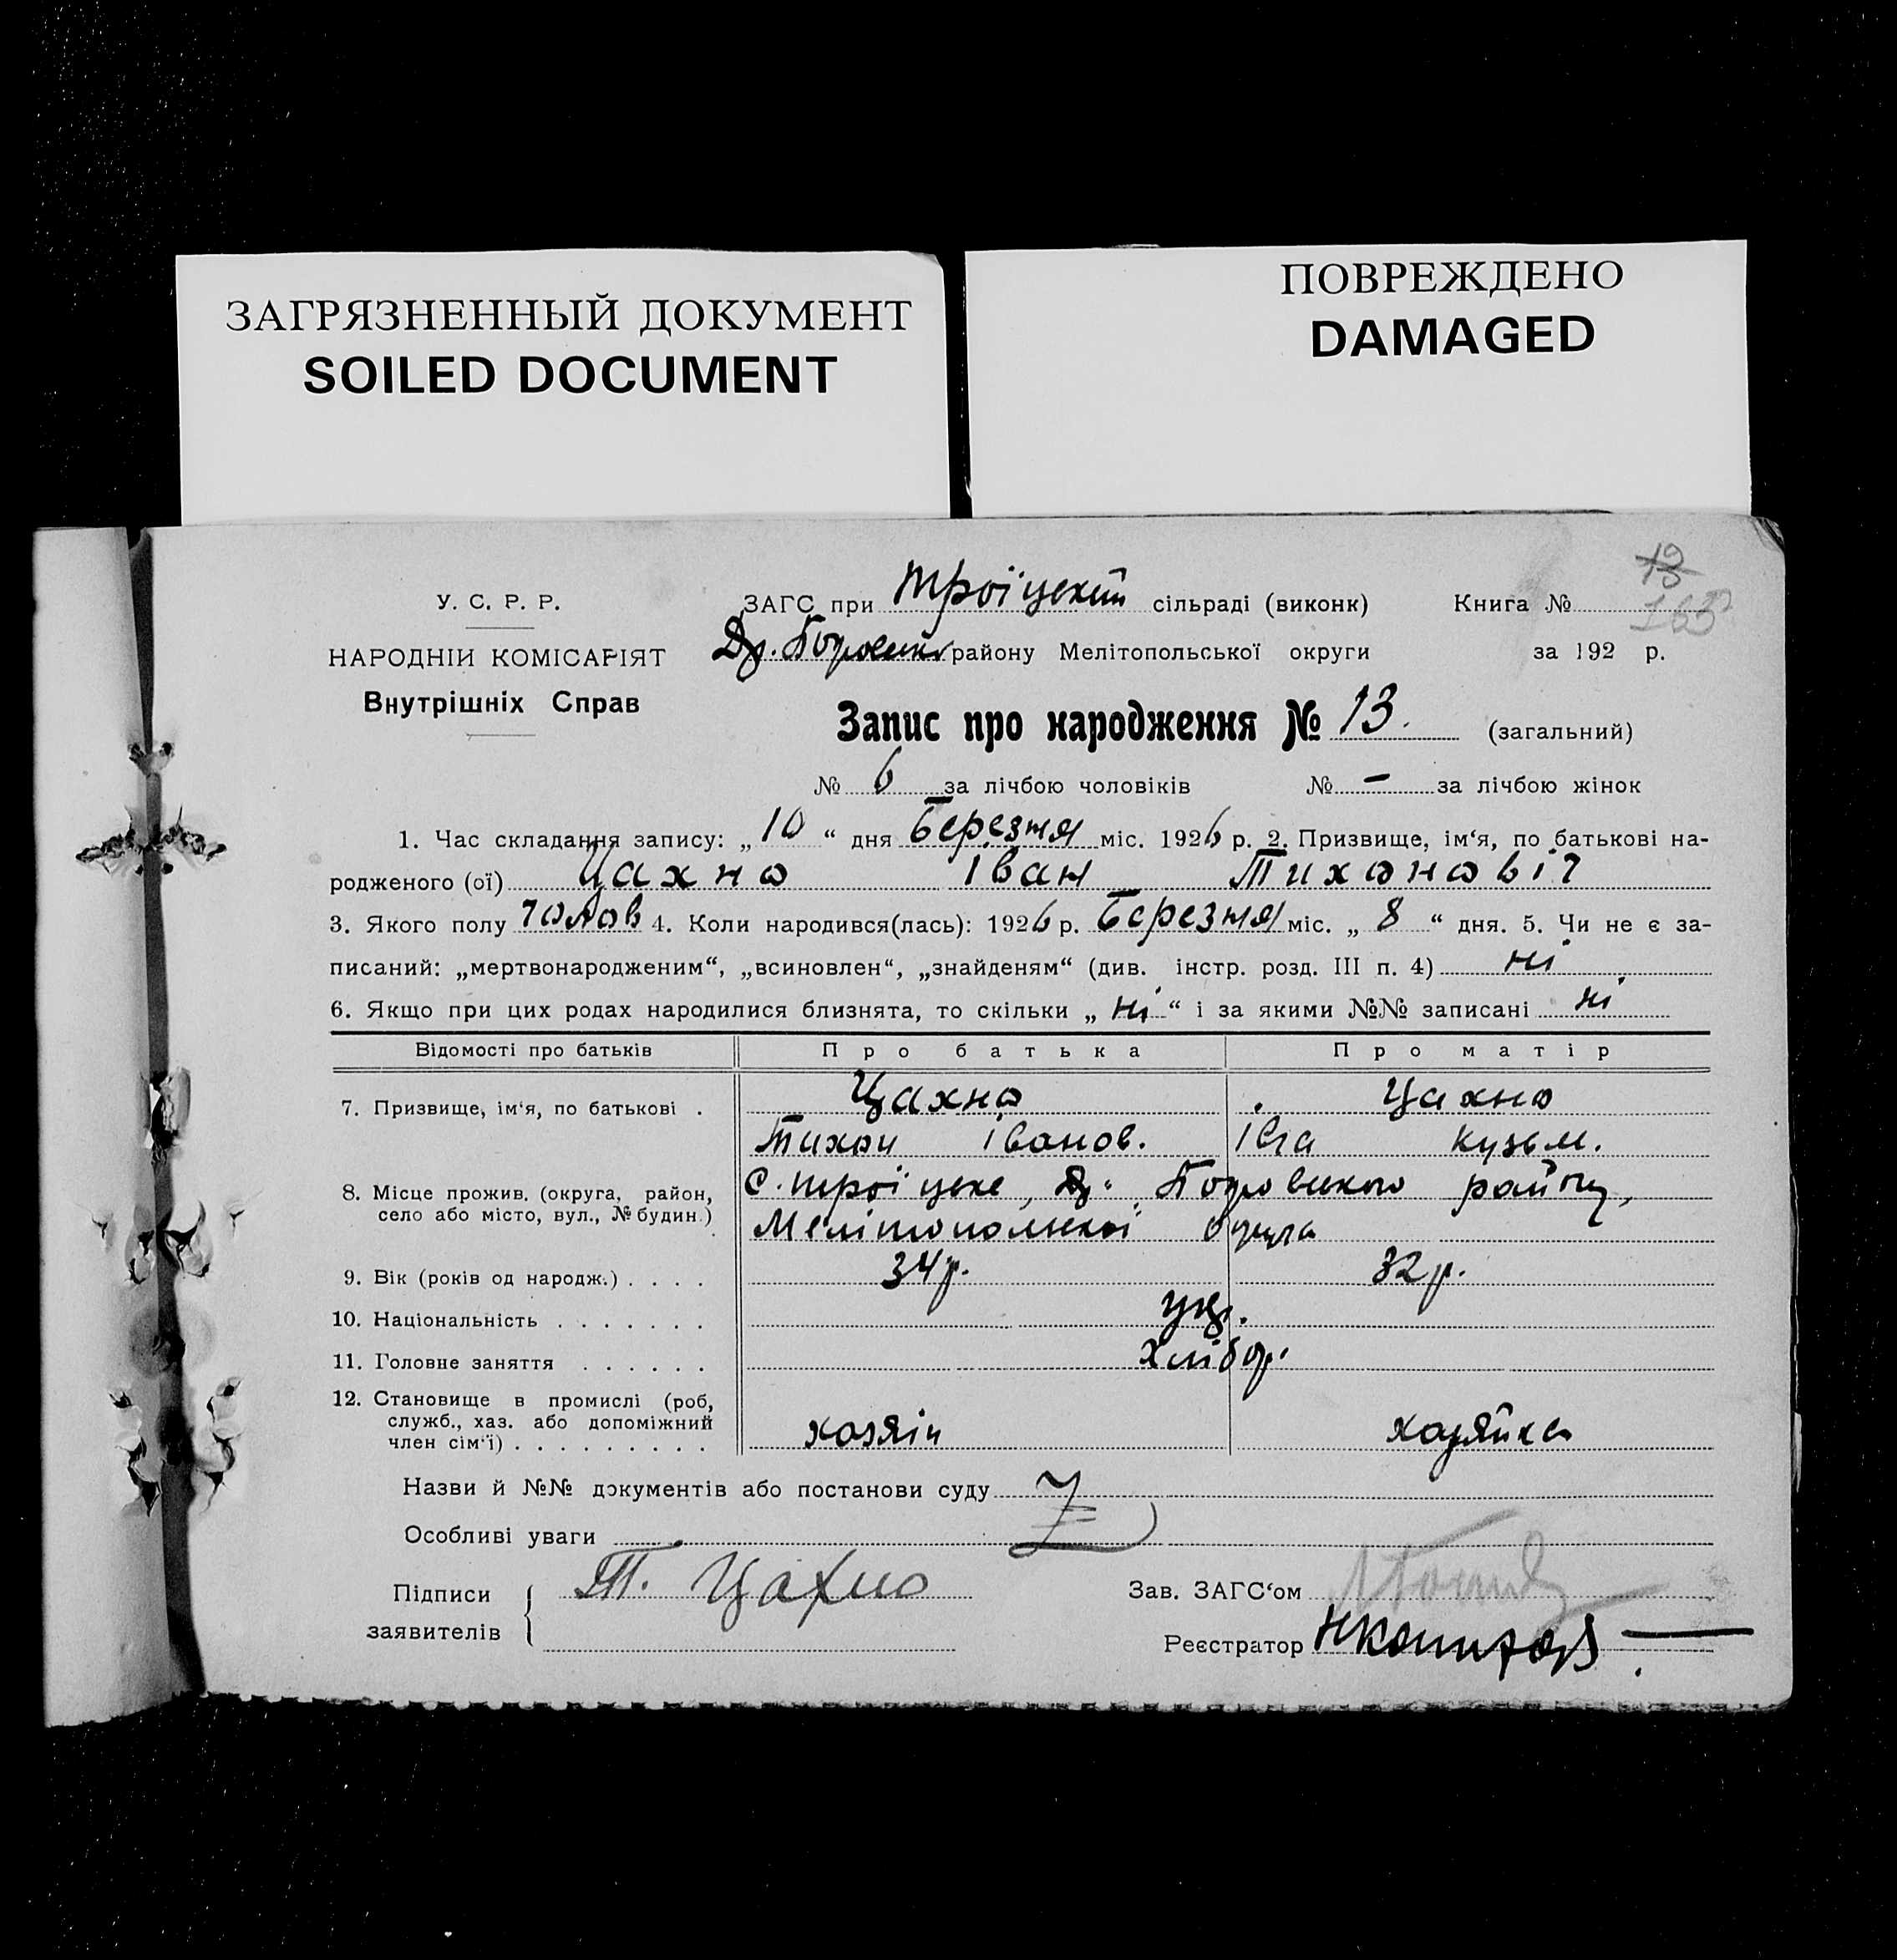 ЗАГРЯЗНЕННЫЙ ДОКУМЕНТ
SOILED DOCUMENT
ПОВРЕЖДЕНО
DAMAGED
13
165
У. С. Р. Р.
НАРОДНІЙ КОМІСАРІЯТ
Внутрішніх Справ
ЗАГС при Троїцькій сільраді (виконк) Книга №
району Мелітопольської округи за 192 р.
Запис про народження № 13. (загальний)
№ 6 за лічбою чоловіків № — за лічбою жінок
1. Час складання запису: „10“ дня Березня міс. 1926 р. 2. Призвище, ім‘я, по батькові на-
родженого (ої) Цахно Іван Тихоновіч
3. Якого полу чолов 4. Коли народився(лась): 1926 р. Березня міс. „8“ дня. 5. Чи не є за-
писаний: „мертвонародженим“, „всиновлен“, „знайденям“ (див. інстр. розд. III п. 4) ні
6. Якщо при цих родах народилися близнята, то скільки „ні“ і за якими №№ записані ні
Відомості про батьків Про батька Про матір
7. Призвище, ім‘я, по батькові . Цахно Цахно
Тихон Іванов. Івга Кузьм.
8. Місце прожив. (округа, район,
село або місто, вул., № будин.)
С. Троїцьке, району,
Мелітопольскої
9. Вік (років од народж.) . . . . 34 р. 32 р.
10. Національність . . . . . . . укр.
11. Головне заняття . . . . . . Хлібор.
12. Становище в промислі (роб,
служб., хаз. або допоміжний
член сім‘ї) . . . . . . . . . хозяін хозяйка
Назви й №№ документів або постанови суду
Особливі уваги
Підписи
заявителів
Т. Цахно
Зав. ЗАГС‘ом
Реєстратор